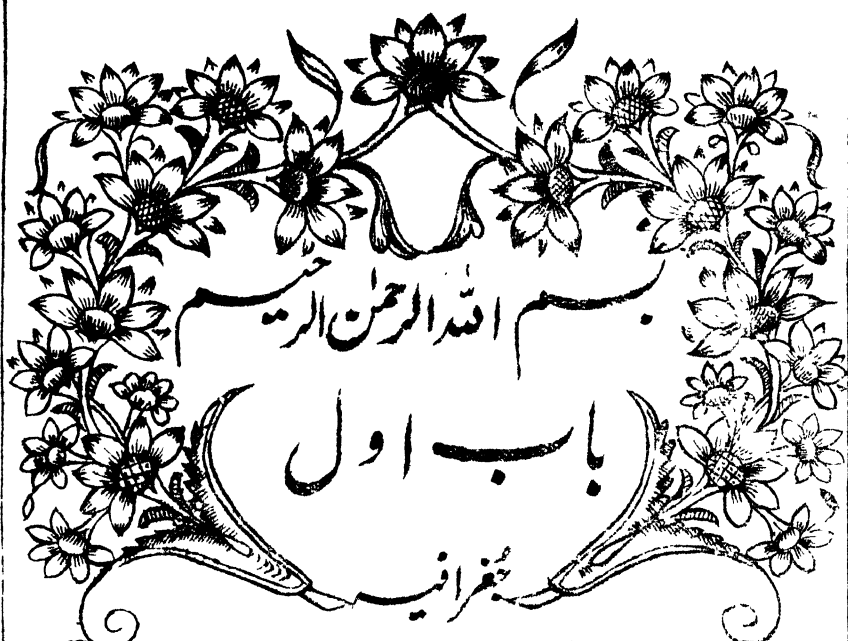 بسم الله الرحمٰن الرحیم
باب اول
جُغرافیہ